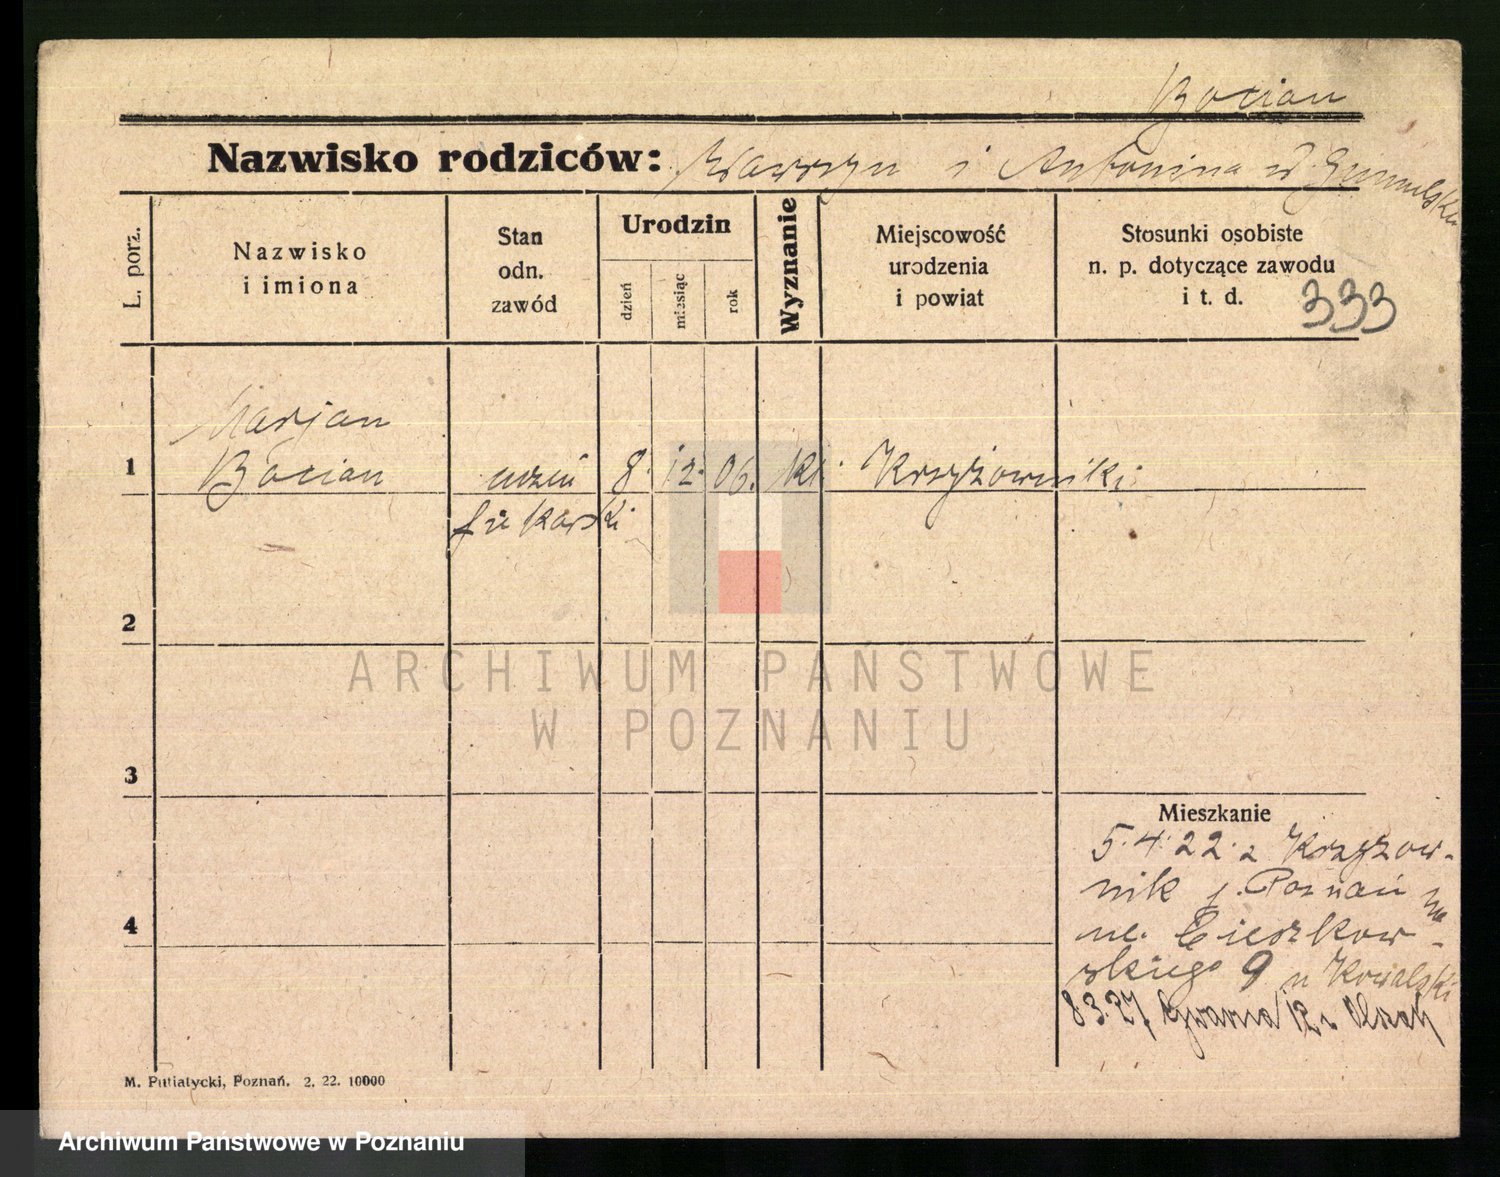 Bocian
Nazwisko rodziców: Wawrzyn i Antonina
L. porz.
Nazwisko
i imiona
Stan
odn.
zawód
Urodzin
dzień
miesiąc
rok
Wyznanie
Miejscowość
urodzenia
i powiat
Stosunki osobiste
n. p. dotyczące zawodu
i t. d.
333
Marjan
1 Bocian uczeń 8. 12. 06. kt. Krzyżowniki
piekarski
2
ARCHIWUM PAŃSTWOWE
W POZNANIU
3
4
Mieszkanie
5.4.22. z Krzyżow-
nik p. Poznań na
ul. Cieszkow-
skiego 9 u Kowalski
8 3.27, 12
M. Putiatycki, Poznań. 2. 22. 10000
Archiwum Państwowe w Poznaniu